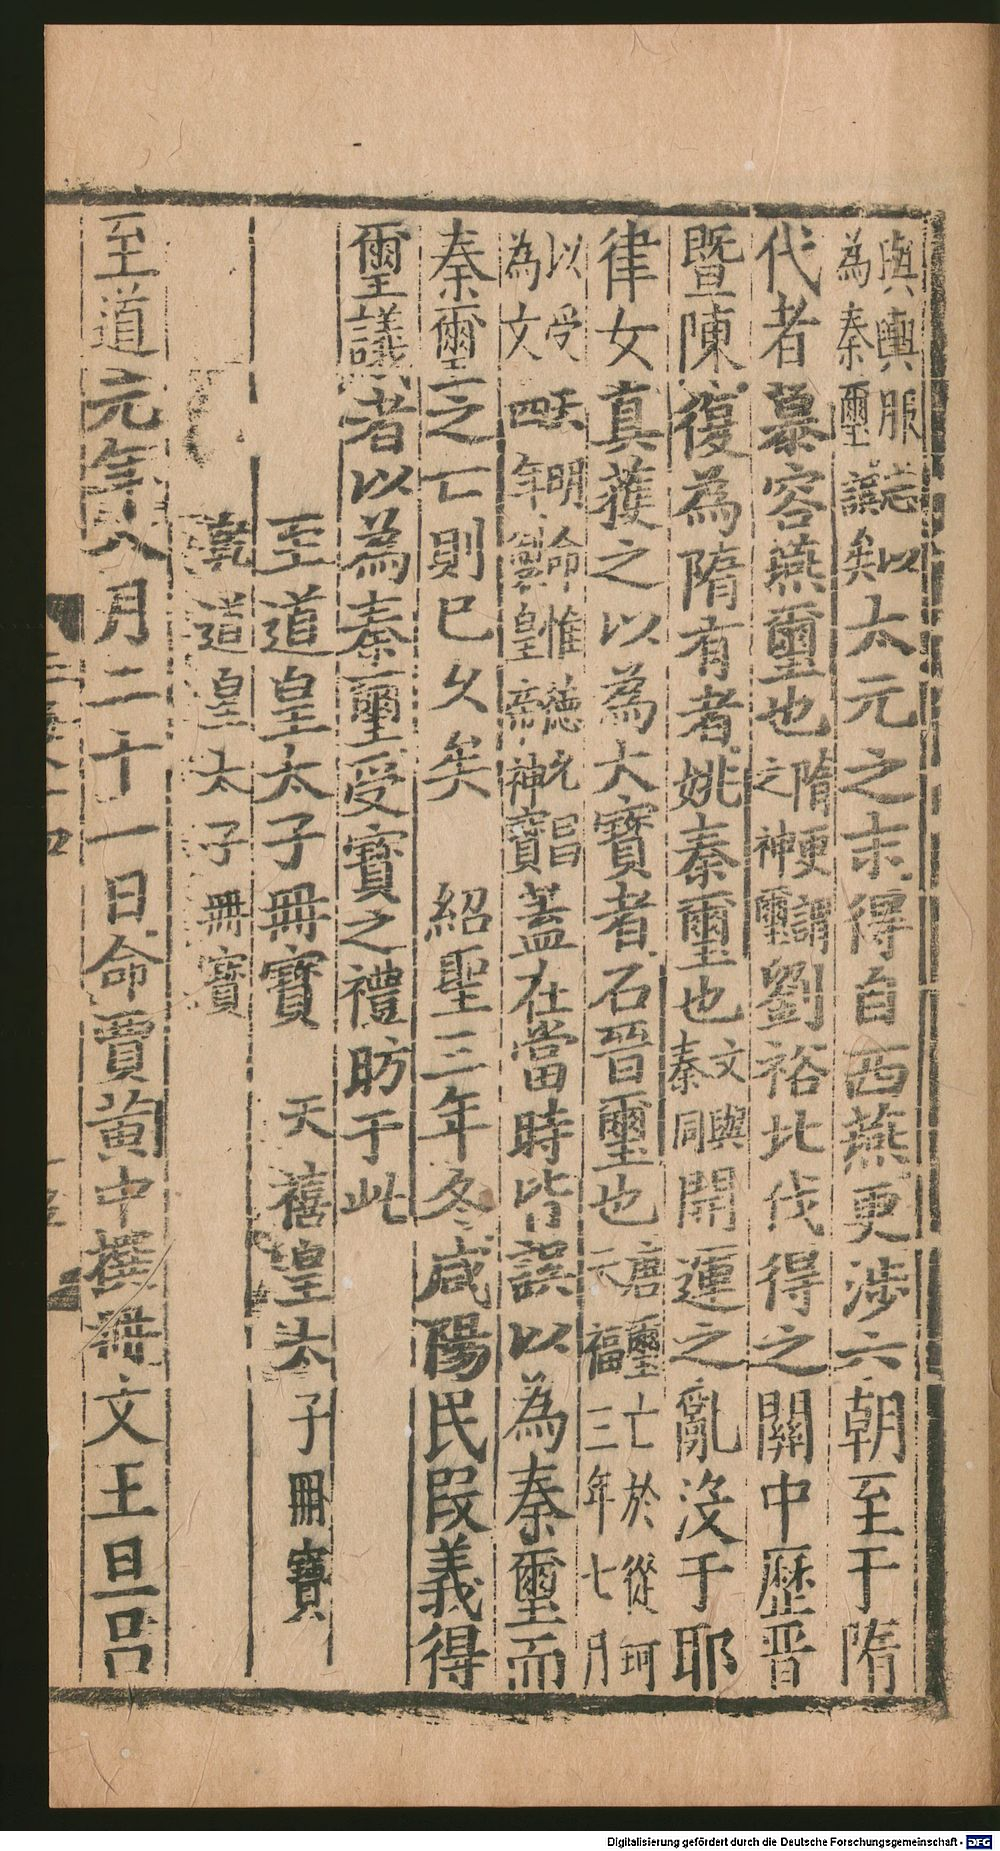 與輿服志以為秦璽誤矣太元之末得自西燕更涉六朝至于隋
代者慕容燕璽也隋更謂之神璽劉裕北伐得之關中歴晉
暨陳復為隋有者姚秦璽也文與秦同開運之亂沒于耶
律女真獲之以為大寶者石晉璽也唐璽亡於從珂天福三年七月
以受天明命惟德允昌為文四年製皇帝神寶蓋在當時皆誤以為秦璽而
秦璽之亡則已久矣 紹聖三年冬咸陽民叚義得
璽議者以為秦璽受寶之禮昉于此
至道皇太子冊寶 天禧皇太子冊寶
乾道皇太子冊寶
至道元年八月二十一日命賈黄中撰冊文王旦吕
Digitalisierung gefördert durch die Deutsche Forschungsgemeinschaft - DFG